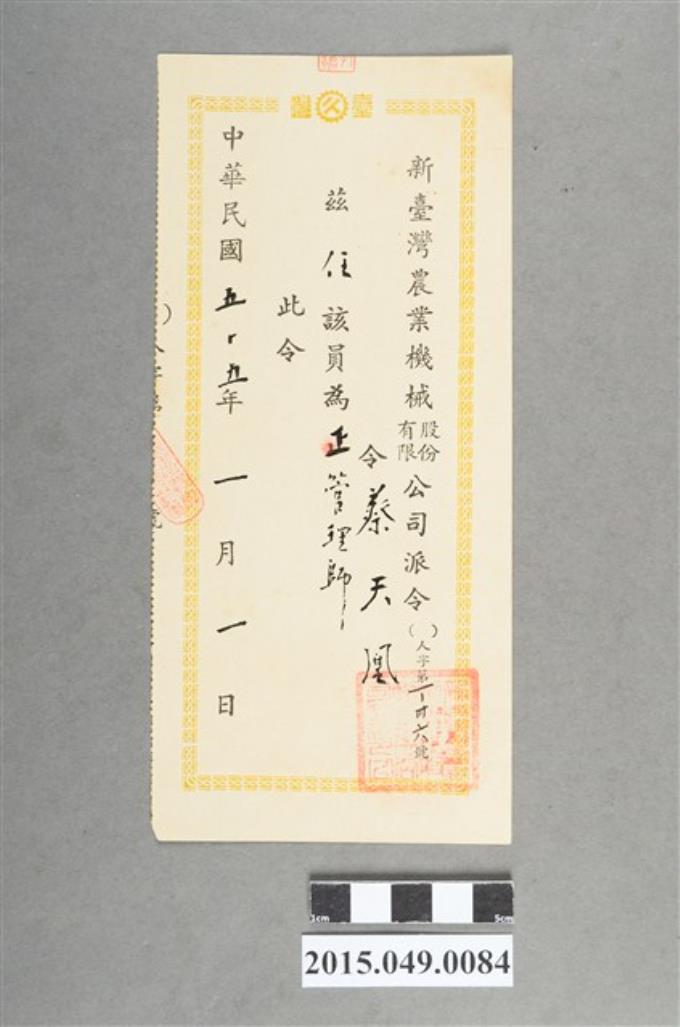 新臺灣農業機械股份有限公司派令( )人字第一一卅六號
令蔡天凰
茲任該員為正管理師
此令
中華民國五十五年一月一日
1cm 5cm
2015.049.0084